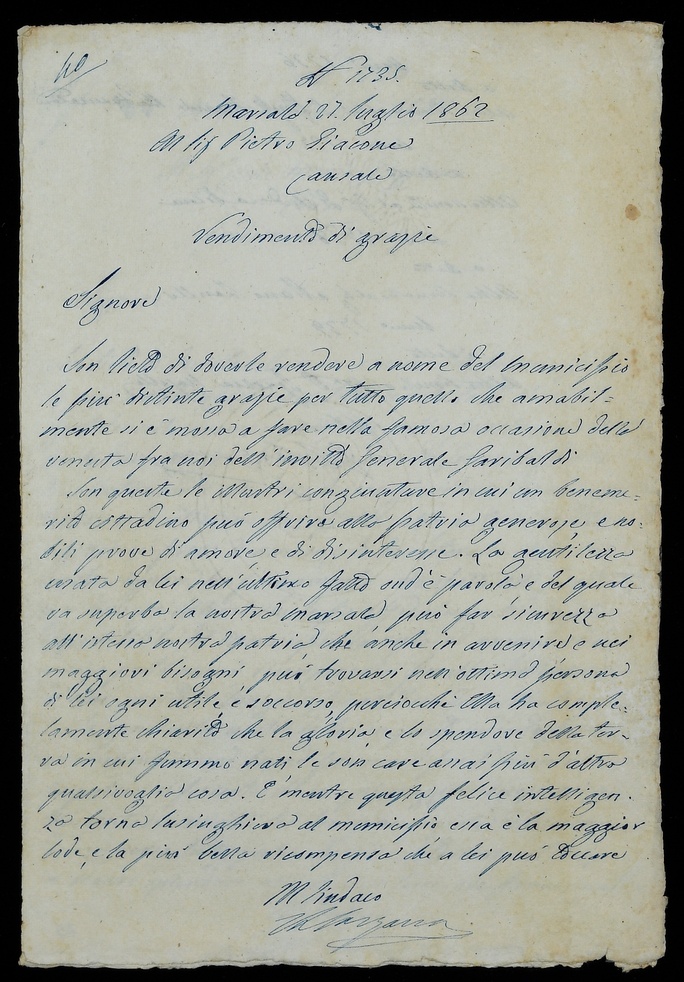 40
N. 1735.
Marsala 27. luglio 1862
Al Sig Pietro Giacone
Causale
Rendimento di grazie
Signore
Son lieto di doverle rendere a nome del Municipio
le più distinte grazie per tutto quello che amabil=
mente si è mosso a fare nella famosa occasione della
venuta fra noi dell'invitto Generale Garibaldi
Son queste le illustri congiunture in cui un beneme=
rito cittadino può offrire alla patria generose, e no=
bili prove di amore e di disinteresse. La gentilezza
usata da lei nell'ultimo fatto ond'è parola e del quale
va superba la nostra Marsala può far sicurezza
all'istessa nostra patria che anche in avvenire e nei
maggiori bisogni può trovarsi nell'ottima persona
di lei ogni utile e soccorso, perciocchè Ella ha comple=
tamente chiarito che la gloria, e lo splendore della ter=
ra in cui fummo nati le son care assai più d'altra
qualsivoglia cosa. E mentre questa felice intelligen=
za torna lusinghiera al municipio essa è la maggior
lode, e la più bella ricompensa che a lei può toccare
Il Sindaco